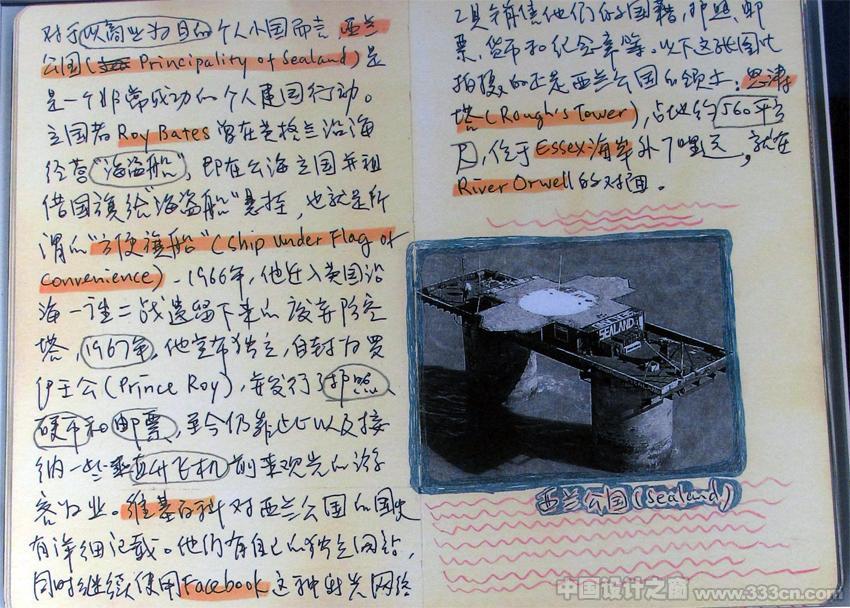 对于以商业为目的个人小国而言，西兰
公国(Principality of Sealand)是
是一个非常成功的个人建国行动。
立国者Roy Bates曾在英格兰沿海
经营"海盗船"，即在公海立国并租
借国旗给"海盗船"悬挂，也就是所
谓的"方便旗船"(Ship under Flag of
Convenience)、1966年，他迁入英国沿
海一座二战遗留下来的废弃防空
塔，1967年，他宣布独立，自封为罗
伊王公(Prince Roy)，并发行了护照、
硬币和邮票，至今仍靠此以及接
纳一些乘直升飞机前来观光的游
客为业。维基百科对西兰公国的国史
有详细记载。他们有自己的独立网站，
同时继续使用Facebook这种社交网络
工具销售他们的国籍，护照、邮
票，货币和纪念章等。以下这张图片
拍摄的正是西兰公国的领土：
塔(Rough's Tower)，占地约560平方
尺，位于Essex海岸外7哩远，就在
River Orwell的对面。
SEALAND
西兰公国(Sealand)
中国设计之窗 www.333cn.com